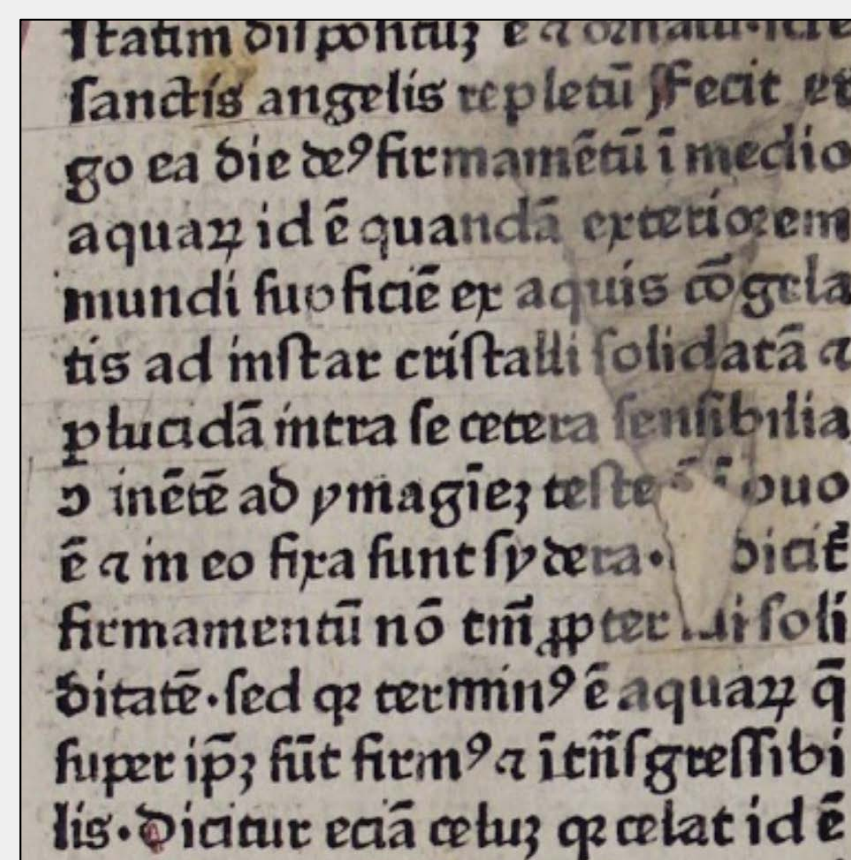 ſtatim diſpoſituꝫ ē ⁊ ornatu·
ſanctis angelis repletū Fecit er
go ea die deꝰ firmamētū ī medio
aquaꝝ id ē quandā exteriorem
mundi ſuꝑficiē ex aquis cōgela
tis ad inſtar criſtalli ſolidatā ⁊
ꝑlucidā intra ſe cetera ſenſibilia
ↄ inētē ad ymagīeꝫ teſte quo
ē ⁊ in eo fixa ſunt ſydera· dicit̄
firmamentū nō tm̄ ꝓpter ſui ſoli
ditatē·ſed qꝛ terminꝰ ē aquaꝝ q̄
ſuper ip̄ꝫ ſūt firmꝰ ⁊ ītn̄ſgreſſibi
lis·Dicitur eciā celuꝫ qꝛ celat id ē